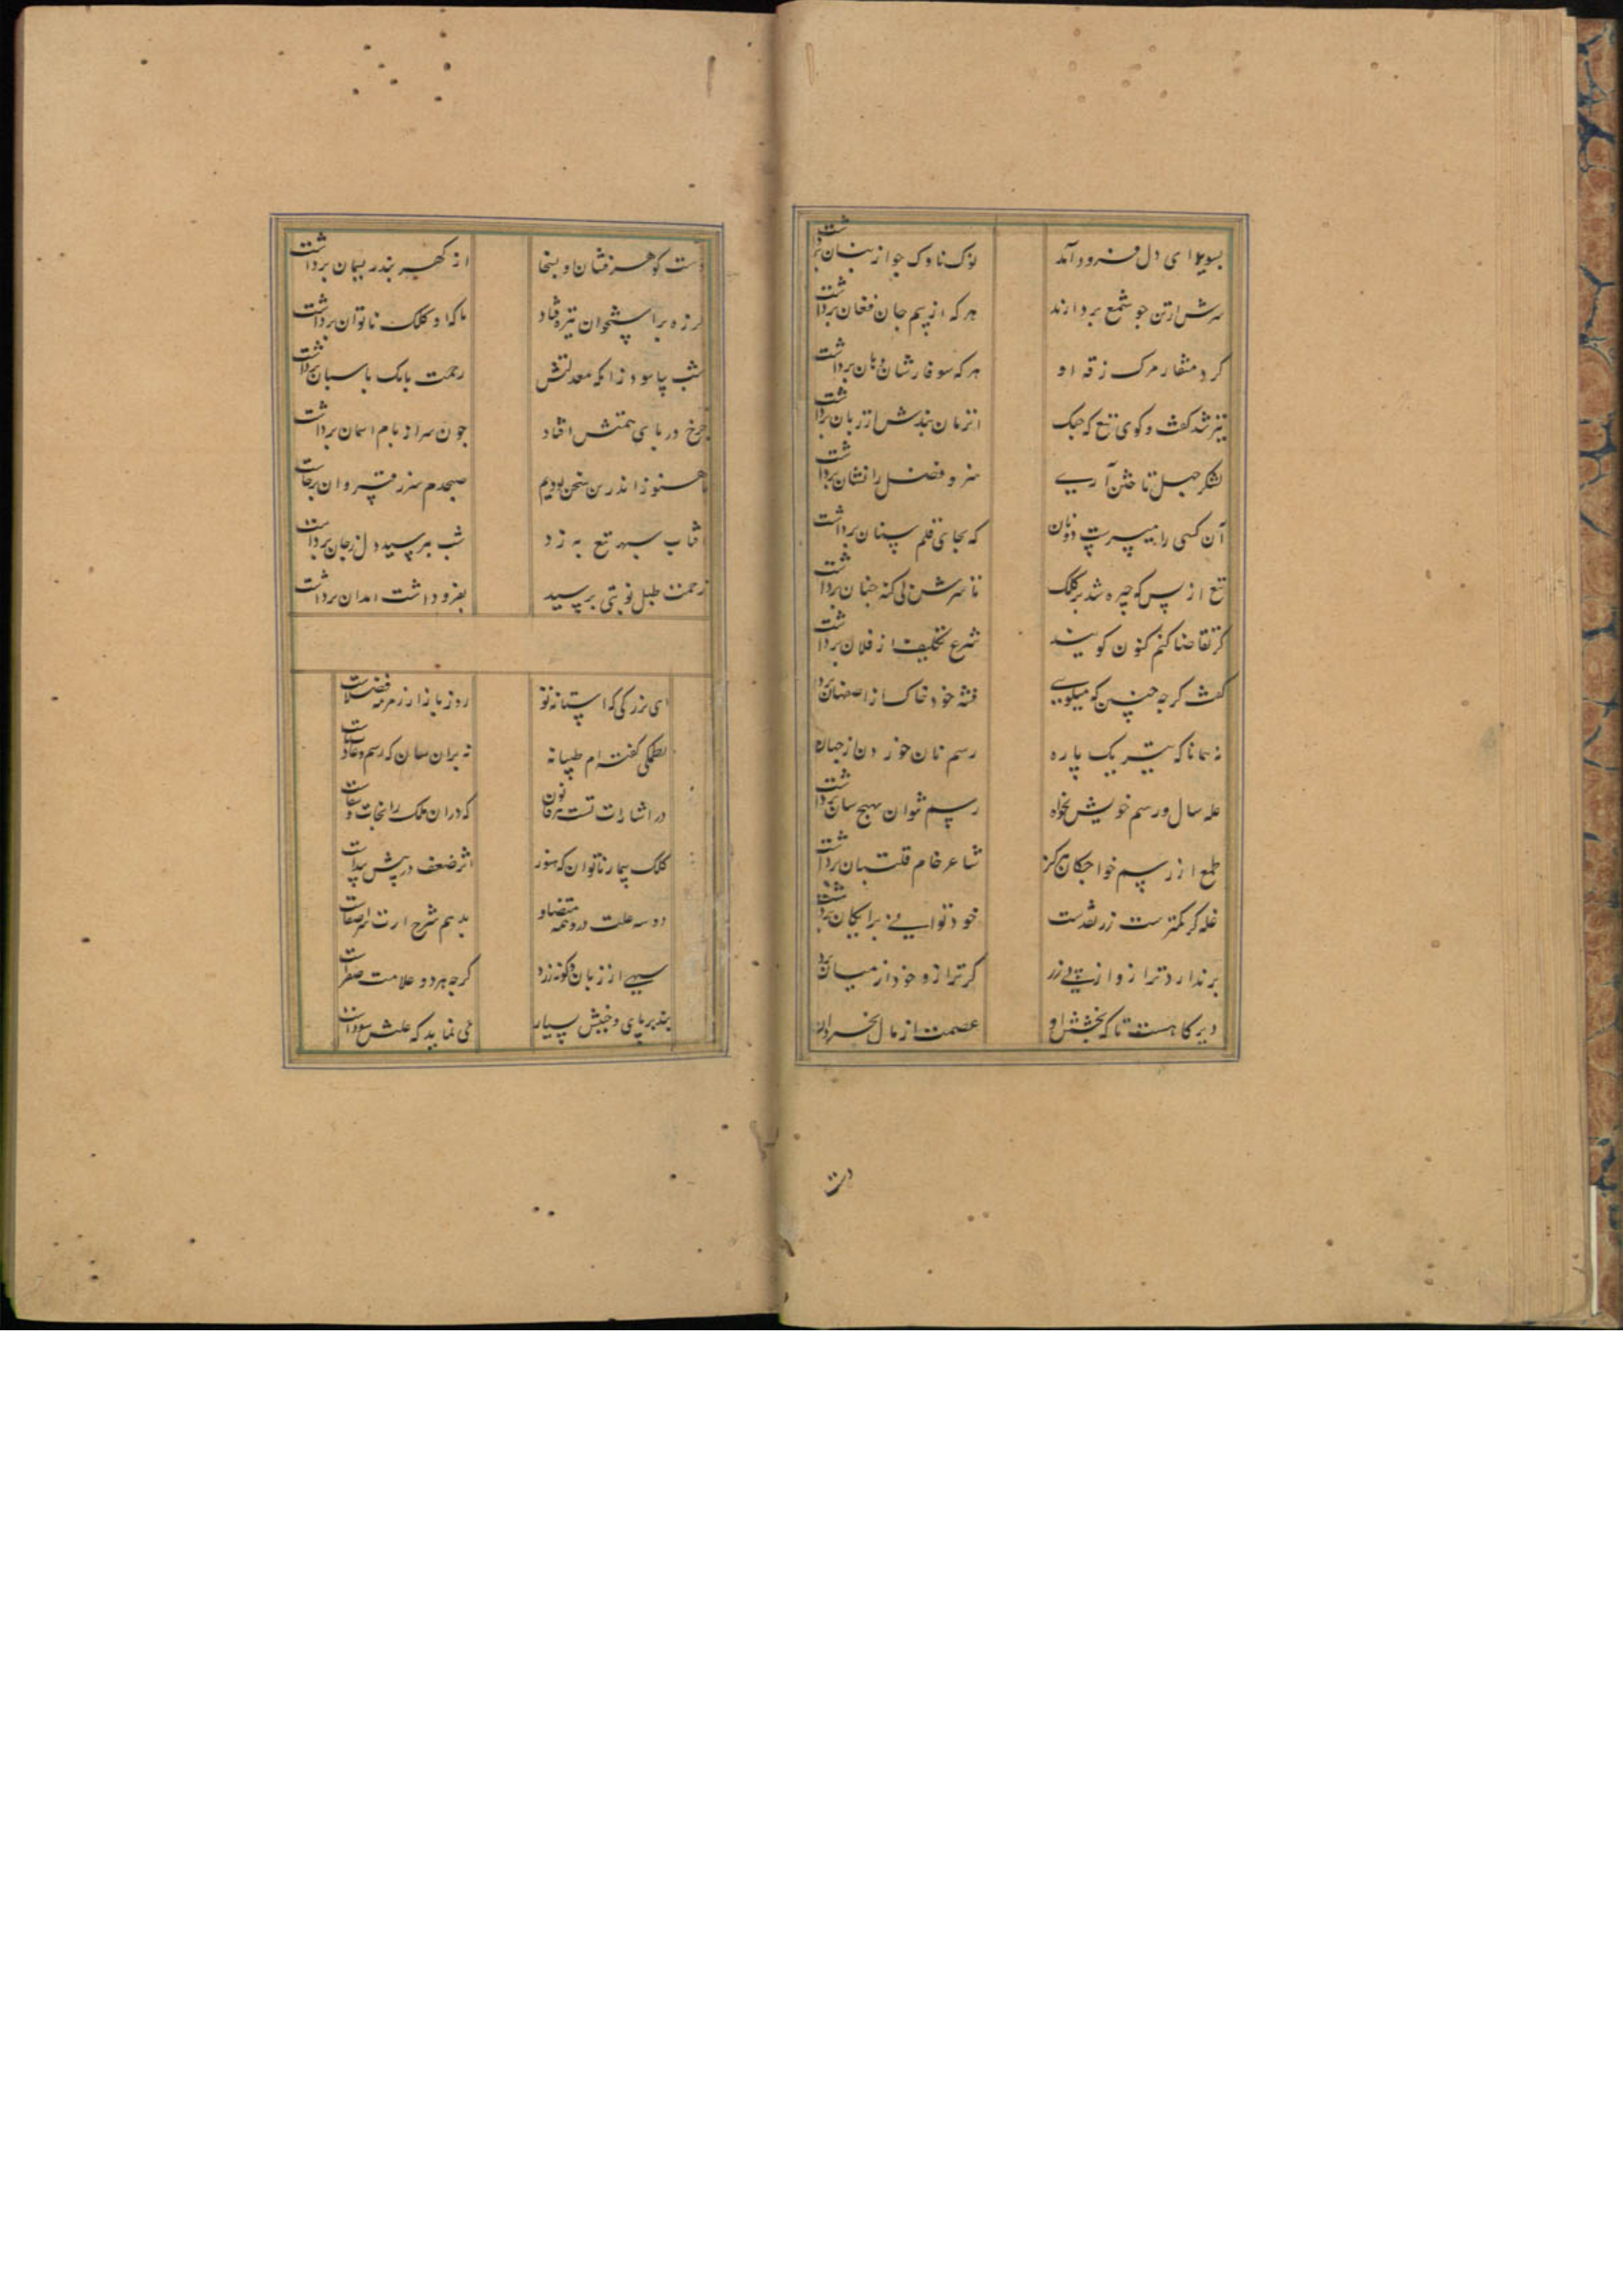 بسویدای دل فرود آمد نوک ناوک جو از بنان برداشت
سرش از تن جو شمع بردارند هر که از بیم جان فغان برداشت
کرد منقار مرک زقه او هر که سوفارشان دهان برداشت
تیز شد کفت و کوی تیغ که جنک از زبان برداشت
لشکر جهل تا ختن آری هنر و فضل را نشان برداشت
آن کسی را سپرت دونان که بجای قلم سنان برداشت
تیغ از پس که چیره شد بر کلک تا سرش بی کنه جنان برداشت
کر تقاضا کنم کنون کویند شرع تکلیف از فلان برداشت
کفت کرجه جنین که میکویی فتنه خود خاک از اصفهان برداشت
نه همانا که تیر یک باره رسم نان خوردن از جهان
غله سال و رسم خویش بخواه رسم نتوان بهیج سان برداشت
طمع از رسم خواجکان هرکز شاعر خام قلتبان برداشت
غله کر کمترست زر نقدست خود توانی زر رایکان برد
برندارد ترازو از پی زر کر ترازو خود از میان برد
دیر کاهست تا که بخشش او عصمت از مال بحر و کان
دت
دست کوهر فشان او بسخا از کهر بند ریسمان برداشت
لرزه بر استخوان نیزه فتاد تا که او کلک ناتوان برداشت
شب بیاسود زانکه معدلتش زحمت بانک باسبان برداشت
جرخ در بای همتش افتاد جون سر از بام اسمان برداشت
ما هنوز اندرین سخن بودیم صبحدم سر ز قیروان برداشت
افتاب سبهر تیغ به زد شب بترسید دل ز جان برداشت
زحمت طبل نوبتی برسید بفرو داشت امدان برداشت
ای بزرکی که استانه تو روز بازار زمره فضلاست
بطمکی کفته ام طبیبانه نه بران سان که رسم و عادت ماست
در اشارات تست هر قانون که دران ملک را نجات و شفاست
کلک بیمار ناتوان که هنوز اثر ضعف در تنش پیداست
دو سه علت درو همه متضاد بدهم شرح ارت سر اصغاست
سیهی از زبان دکونه زرد کرجه هر دو علامت صفراست
بند بر پای و جنبش بسیار می نماید که علتش سوداست